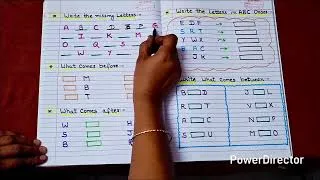 Write the missing Letters:-
A B C D E F G
I K M
O Q S
W Y
What Comes before:-
M
B
T
What Comes after:-
W
S
B
Write the Letters in ABC Order
E D F
S R T
Y W X
B A C
J K
Write what Comes between:-
B D
R T
A C
S U
J L
V X
N P
M O
H
J
PowerDirector